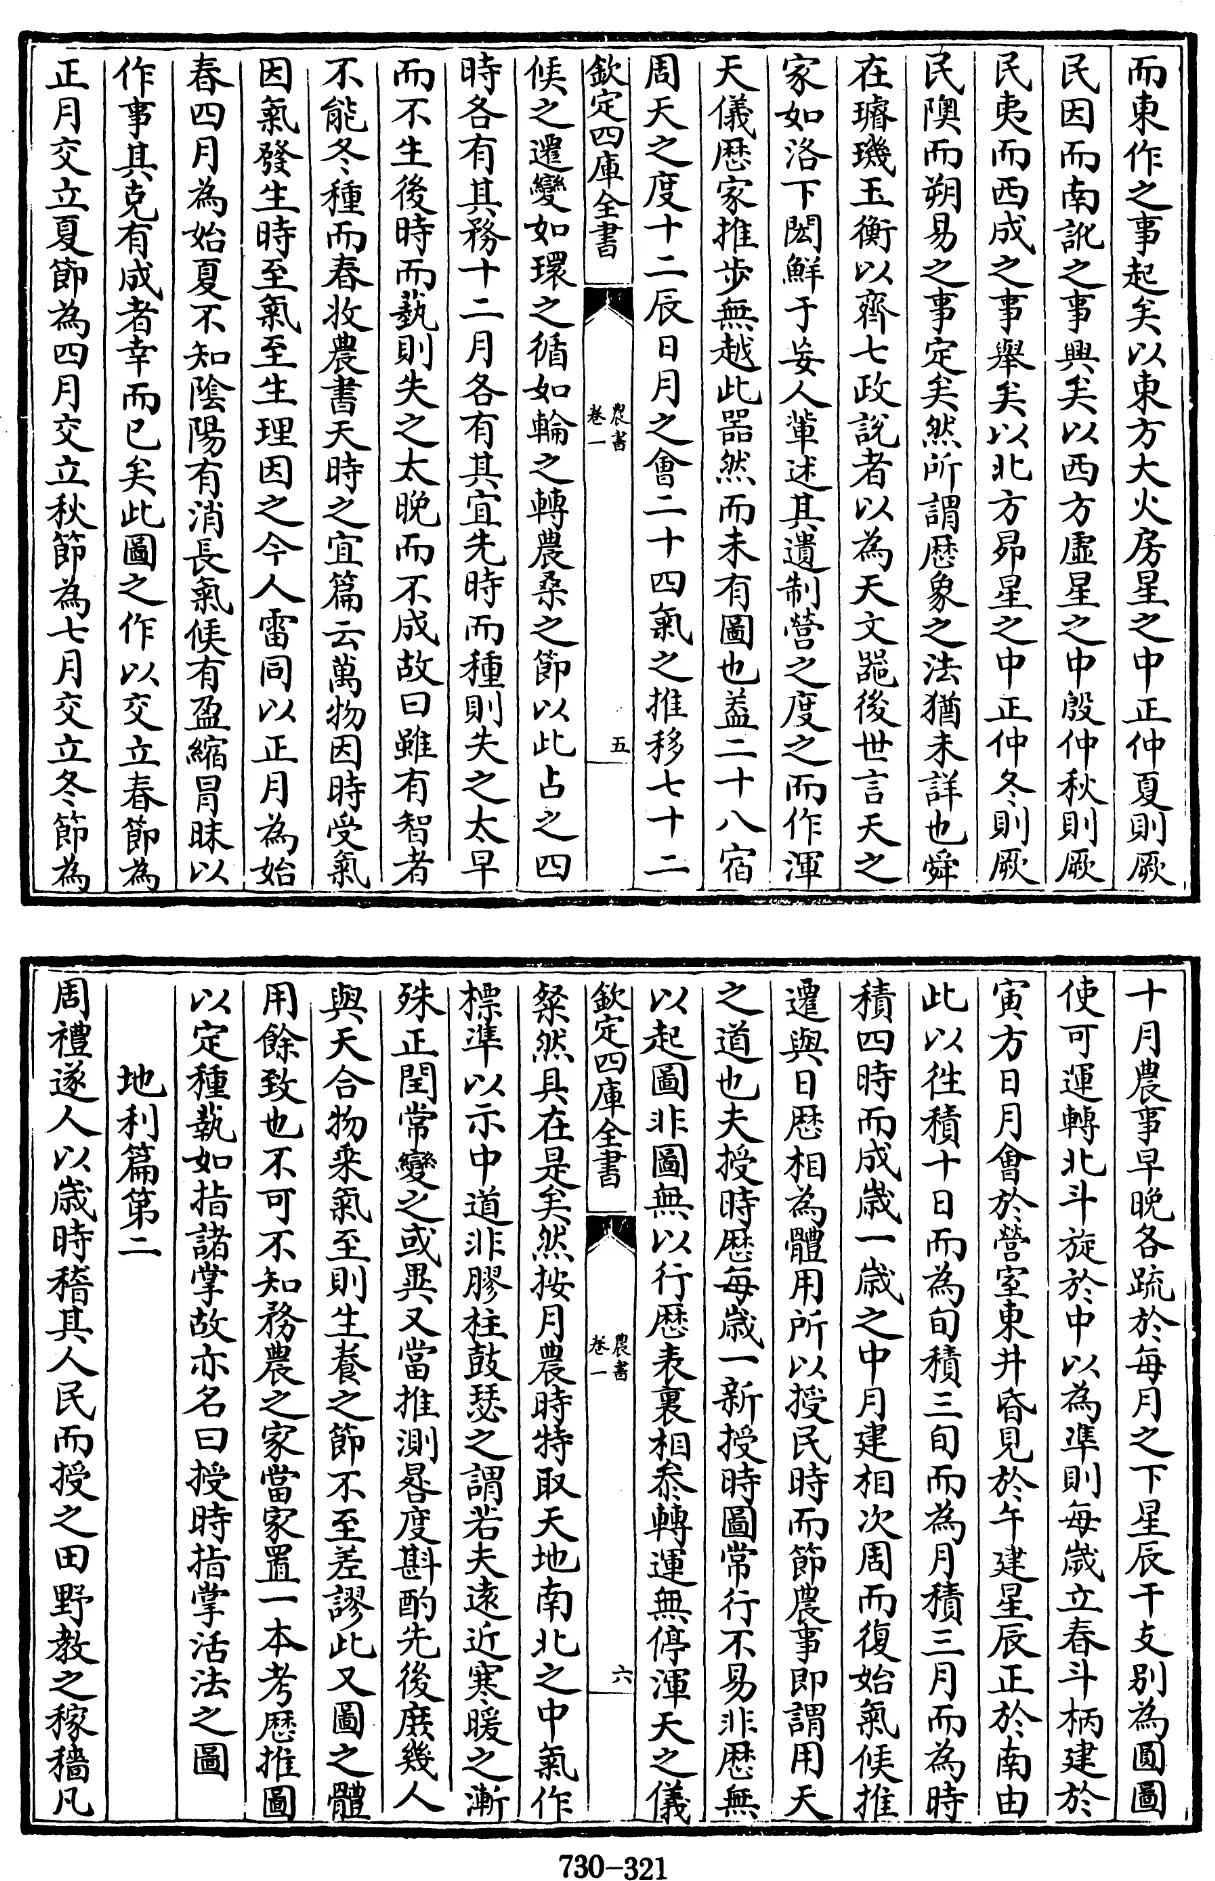 而東作之事起矣以東方大火房星之中正仲夏則厥
民因而南訛之事興矣以西方虛星之中殷仲秋則厥
民夷而西成之事舉矣以北方昴星之中正仲冬則厥
民隩而朔易之事定矣然所謂歴象之法猶未詳也舜
在璿璣玉衡以齊七政說者以為天文噐後世言天之
家如洛下閎鮮于妄人軰述其遺制營之度之而作渾
天儀歴家推步無越此器然而未有圖也葢二十八宿
周天之度十二辰日月之會二十四氣之推移七十二
欽定四庫全書
農書
卷一
五
候之遷變如環之循如輪之轉農桑之節以此占之四
時各有其務十二月各有其宜先時而種則失之太早
而不生後時而蓺則失之太晚而不成故曰雖有智者
不能冬種而春收農書天時之宜篇云萬物因時受氣
因氣發生時至氣至生理因之今人雷同以正月為始
春四月為始夏不知陰陽有消長氣候有盈縮冒昧以
作事其克有成者幸而已矣此圖之作以交立春節為
正月交立夏節為四月交立秋節為七月交立冬節為
十月農事早晚各疏於每月之下星辰干支别為圓圖
使可運轉北斗旋於中以為凖則每嵗立春斗柄建於
寅方日月會於營室東井昏見於午建星辰正於南由
此以往積十日而為旬積三旬而為月積三月而為時
積四時而成嵗一嵗之中月建相次周而復始氣候推
遷與日歴相為體用所以授民時而節農事即謂用天
之道也夫授時歴每嵗一新授時圖常行不易非歴無
以起圖非圖無以行歴表裏相參轉運無停渾天之儀
欽定四庫全書
農書
卷一
六
粲然具在是矣然按月農時特取天地南北之中氣作
標凖以示中道非膠柱鼓瑟之謂若夫遠近寒暖之漸
殊正閏常變之或異又當推測晷度斟酌先後庶幾人
與天合物乘氣至則生養之節不至差謬此又圖之體
用餘致也不可不知務農之家當家置一本考歴推圖
以定種蓺如指諸掌故亦名曰授時指掌活法之圖
地利篇第二
周禮遂人以嵗時稽其人民而授之田野教之稼穡凡
730-321